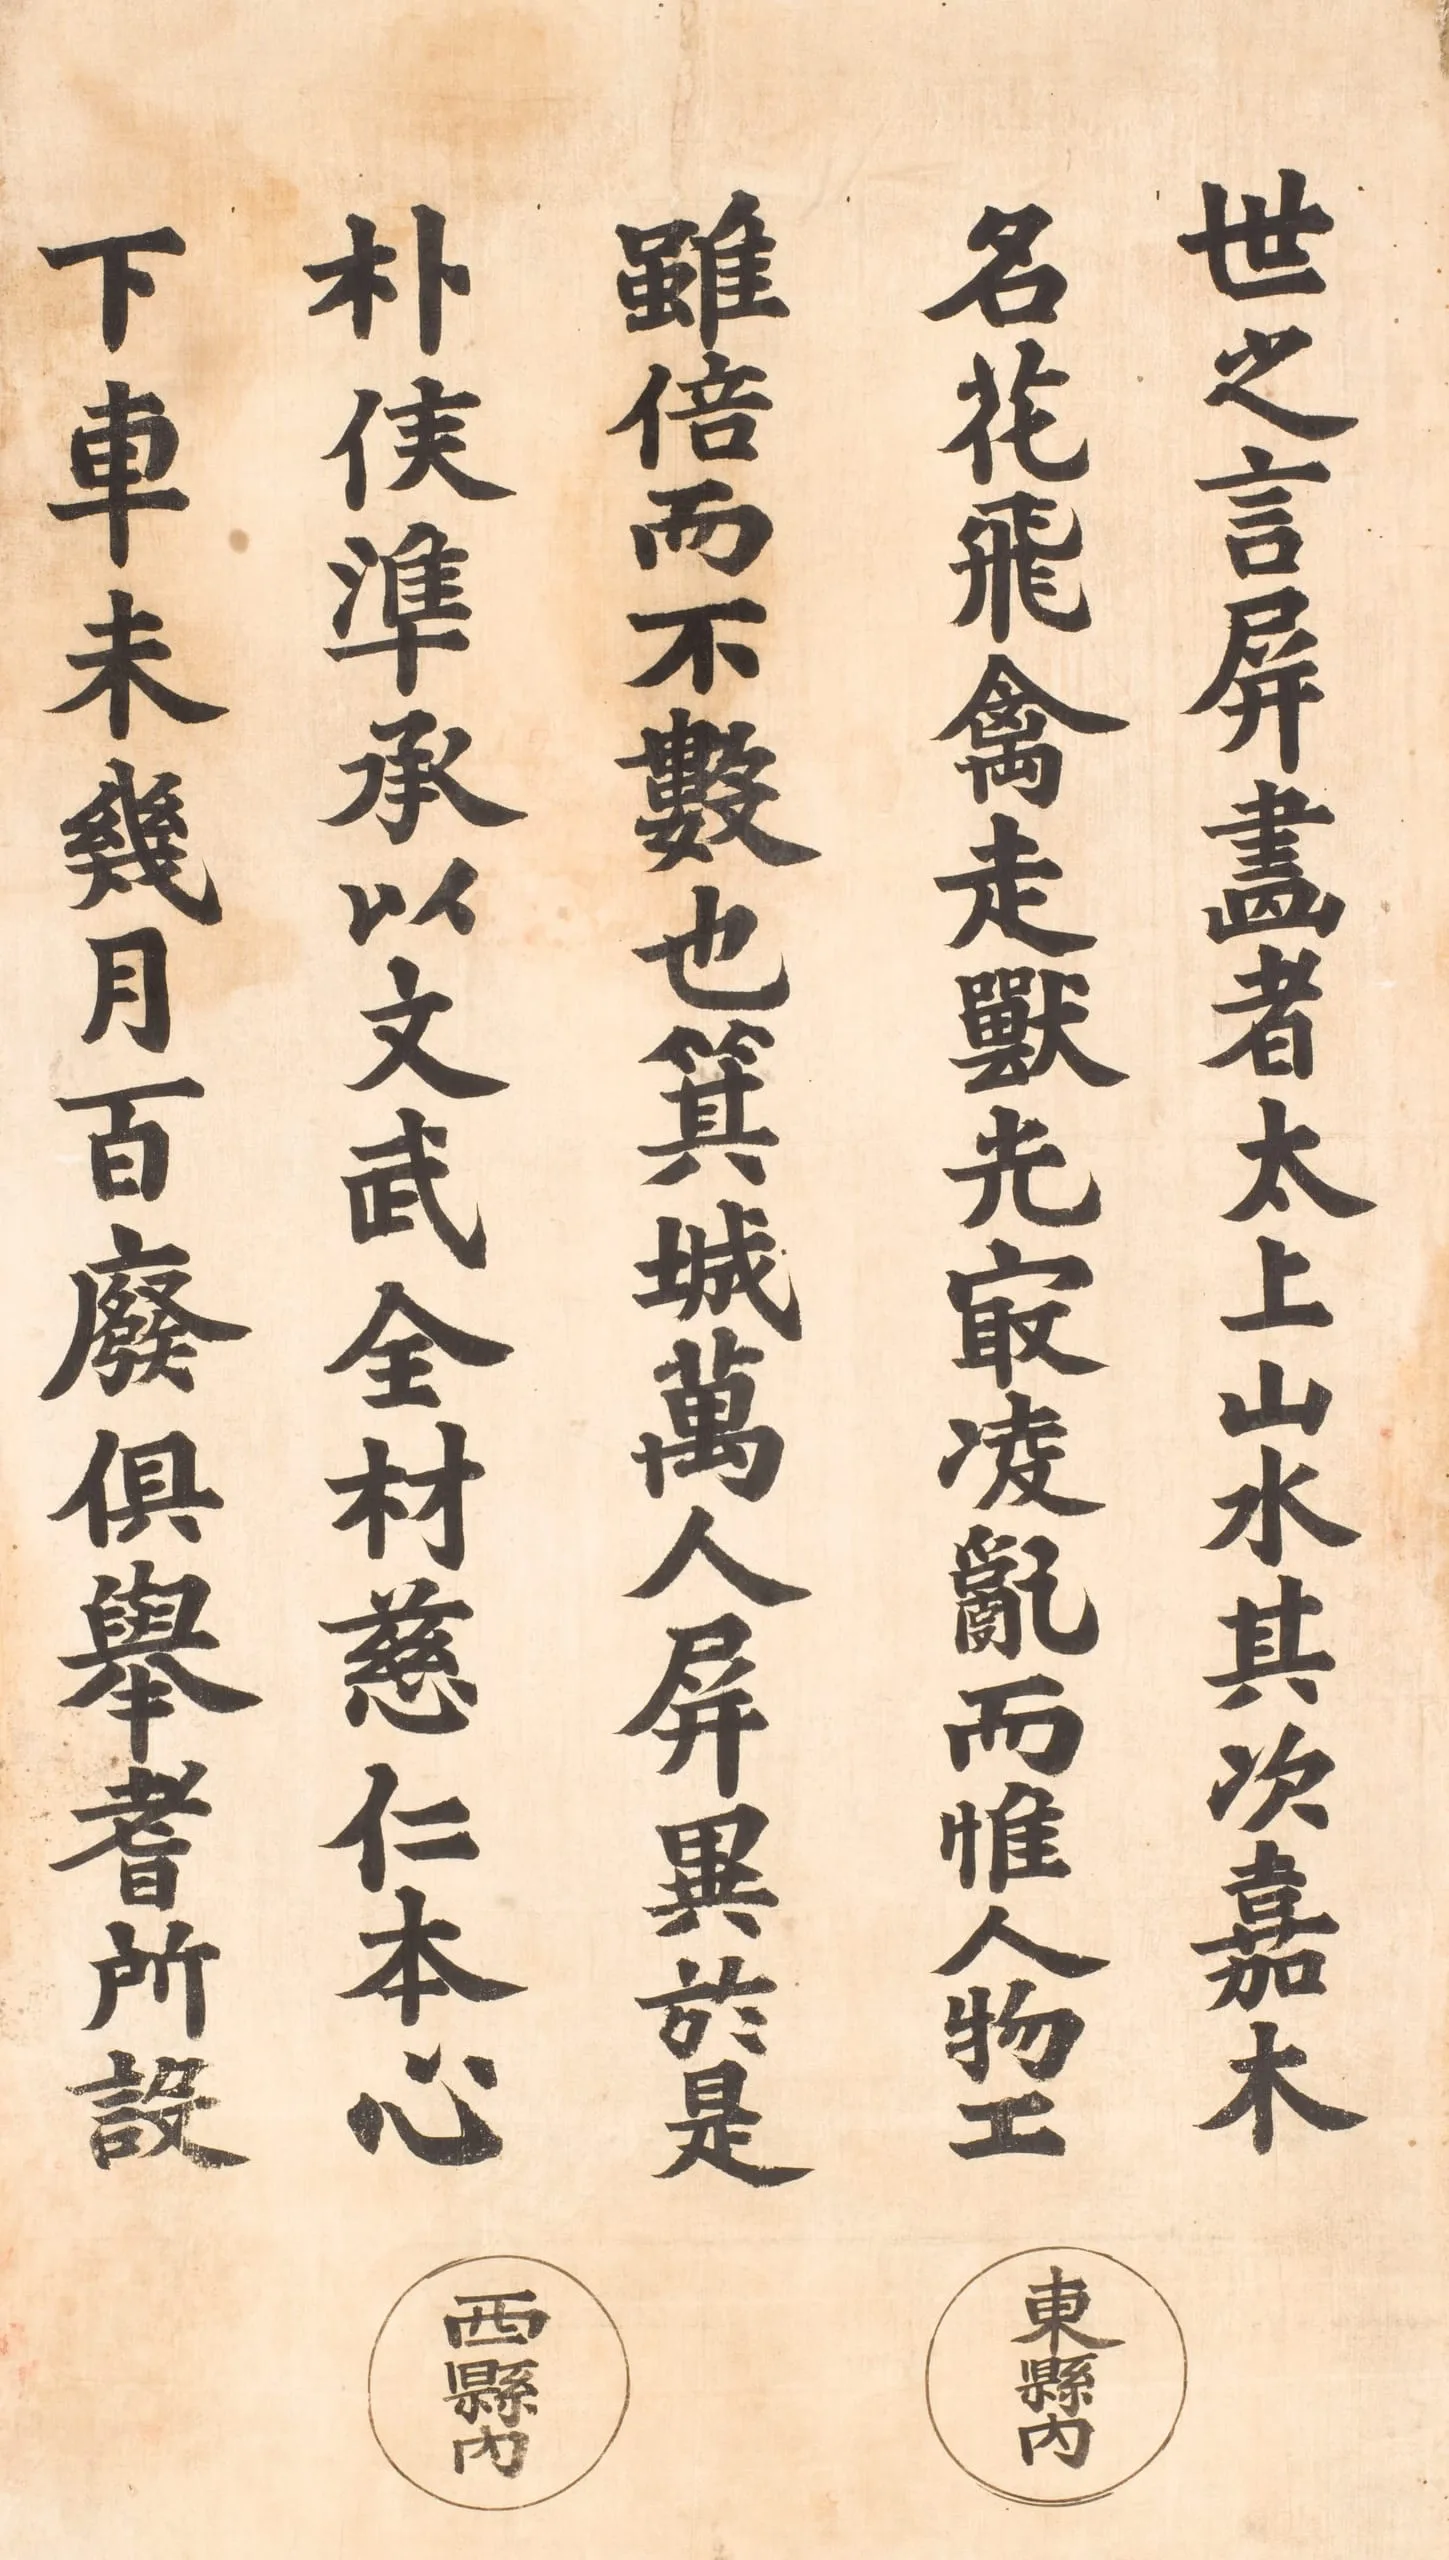 世之言屏畵者太上山水其次嘉木
名花飛禽走獸光㝡凌亂而惟人物工
雖倍而不數也箕城萬人屏異於是
朴侯準承以文武全材慈仁本心
下車未幾月百廢俱舉耆所設
東縣內
西縣內